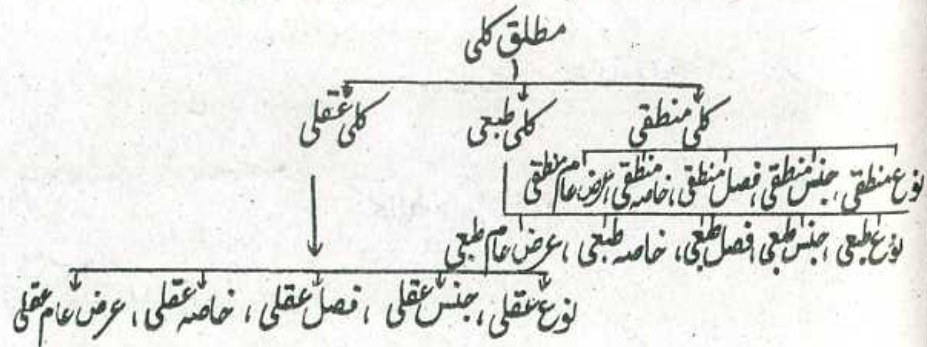 مطلق کلی
کلی منطقی کلی طبعی کلی عقلی
نوع منطقی، جنس منطقی، فصل منطقی، خاصہ منطقی، عرض عام منطقی
نوع طبعی، جنس طبعی، فصل طبعی، خاصہ طبعی، عرض عام طبعی
نوع عقلی، جنس عقلی، فصل عقلی، خاصہ عقلی، عرض عام عقلی